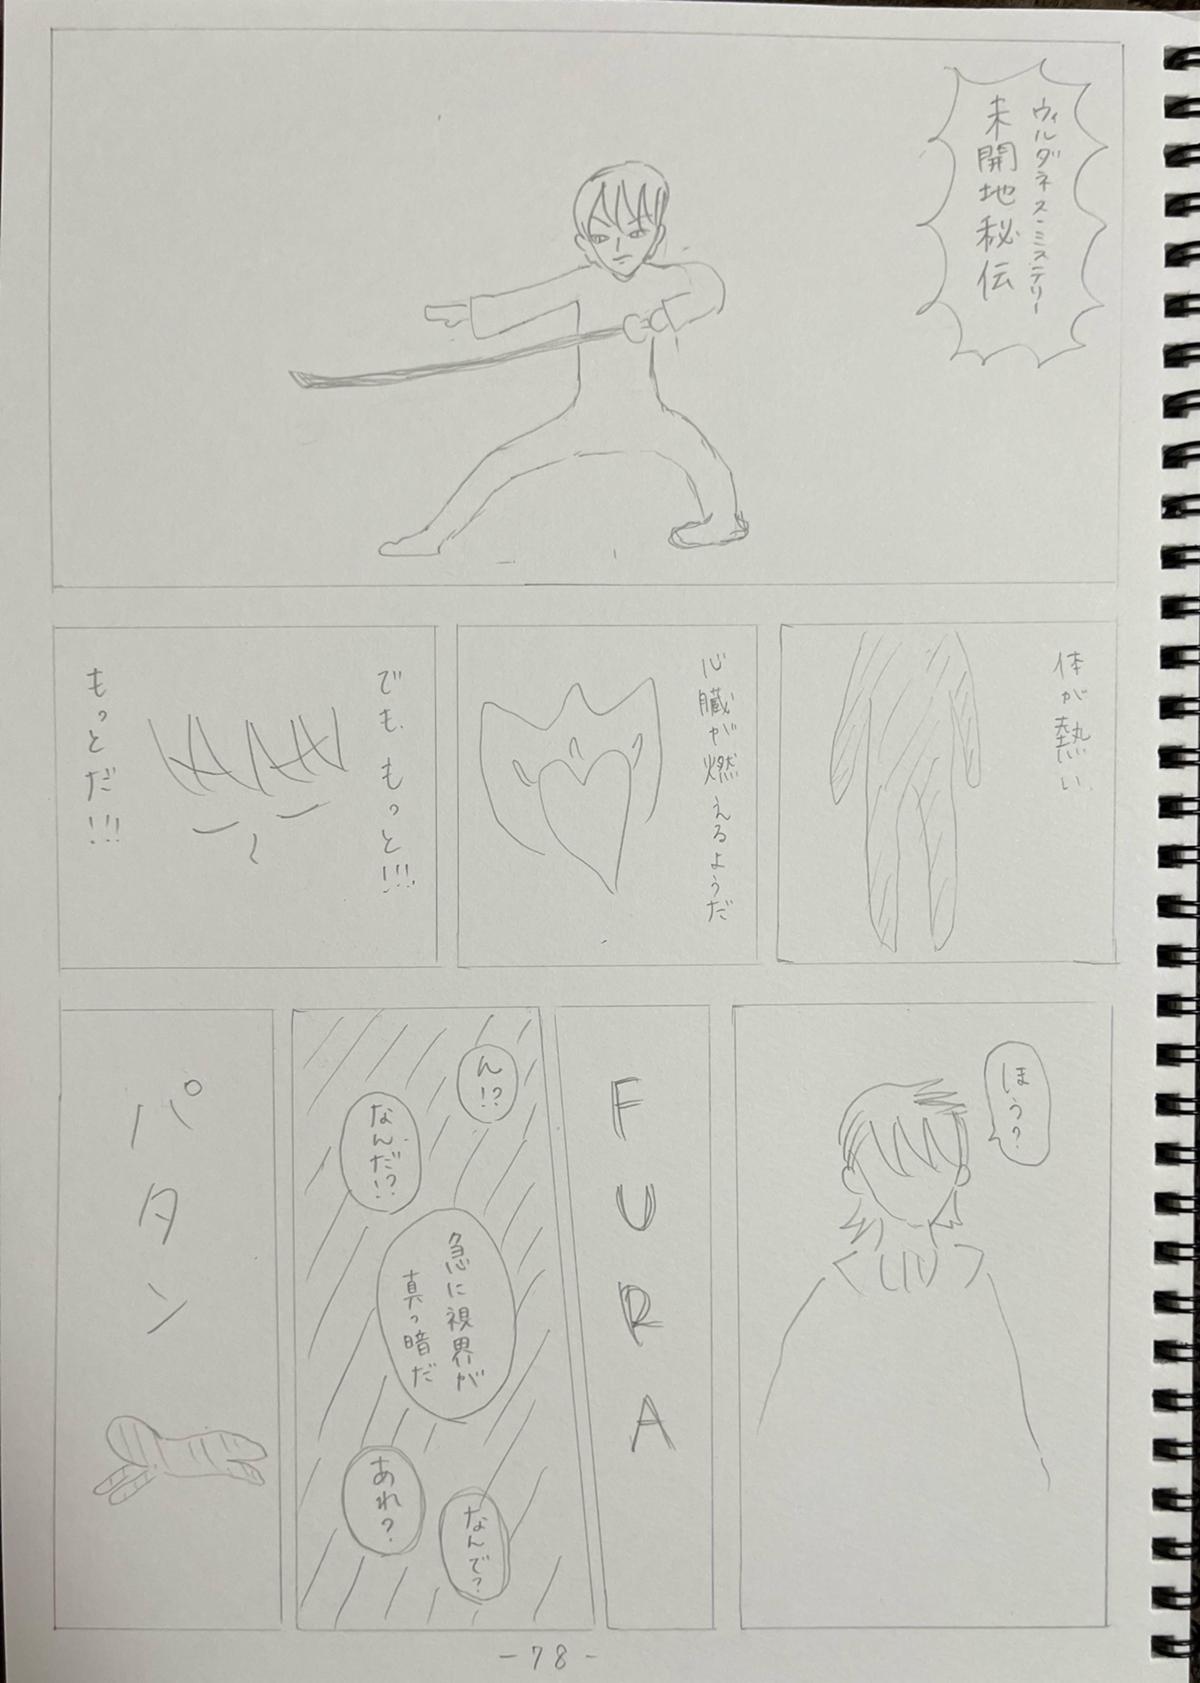 ウィルダネス・ミステリー
未開地秘伝
体が熱い
心臓が燃えるようだ
でも、もっと!!!
もっとだ!!!
ほう?
FURA
ん!?
なんだ!?
急に視界が
真っ暗だ
あれ?
なんで?
パタン
-78-